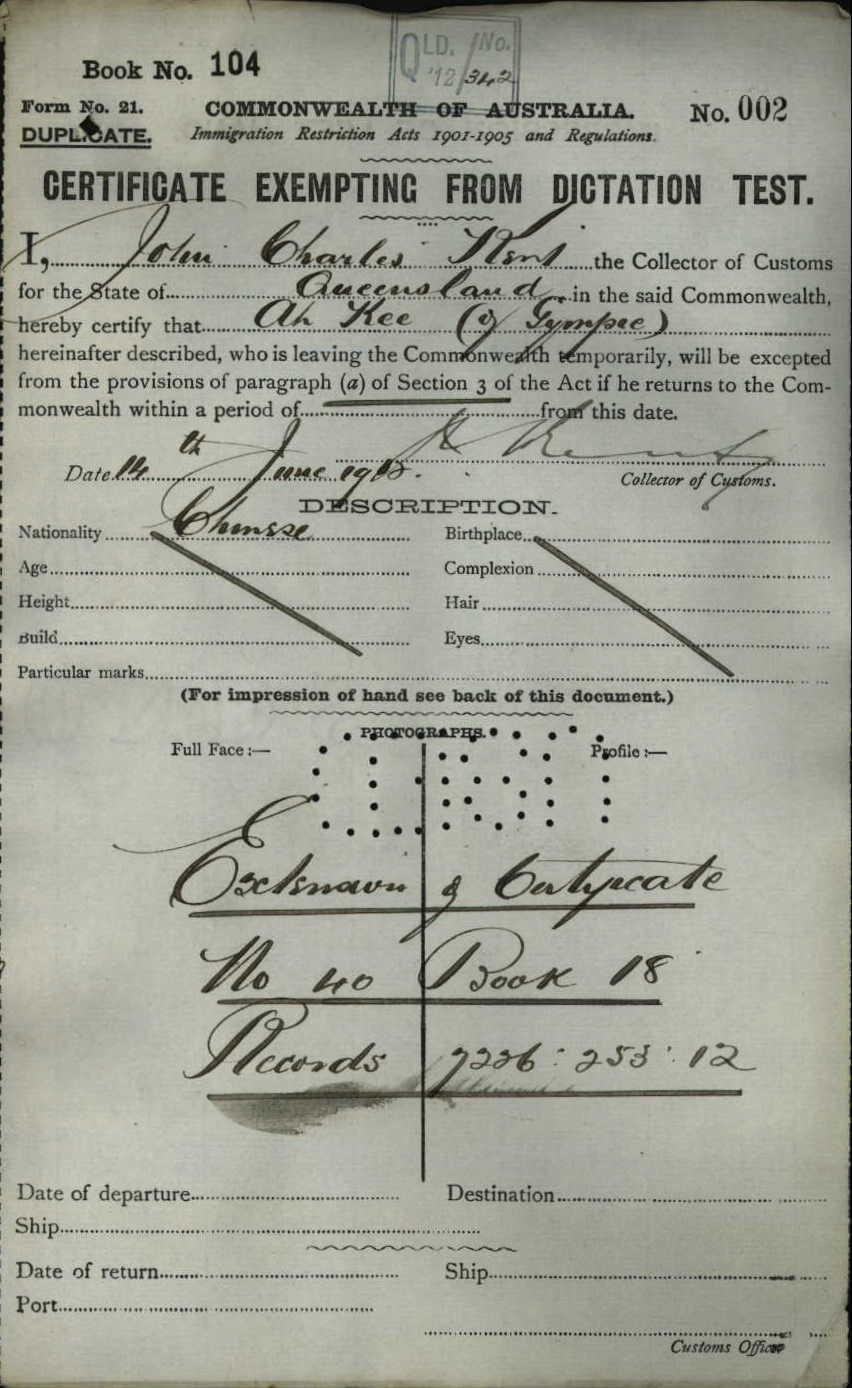 QLD. No.
'12/342
Book No. 104
Form No. 21. COMMONWEALTH OF AUSTRALIA. No. 002
DUPLICATE. Immigration Restriction Acts 1901-1905 and Regulations.
CERTIFICATE EXEMPTING FROM DICTATION TEST.
I, John Charles Kent the Collector of Customs
for the State of Queensland in the said Commonwealth,
hereby certify that Ah Kee (of Gympie)
hereinafter described, who is leaving the Commonwealth temporarily, will be excepted
from the provisions of paragraph (a) of Section 3 of the Act if he returns to the Com-
monwealth within a period of from this date.
Date 14th June 1912. Kent
Collector of Customs.
DESCRIPTION.
Nationality Chinese Birthplace
Age Complexion
Height Hair
Build Eyes
Particular marks
(For impression of hand see back of this document.)
PHOTOGRAPHS.
Full Face :— Profile :—
of Certificate
No 40 Book 18
Records 7226 : 253 : 12
Date of departure Destination
Ship
Date of return Ship
Port
Customs Officer